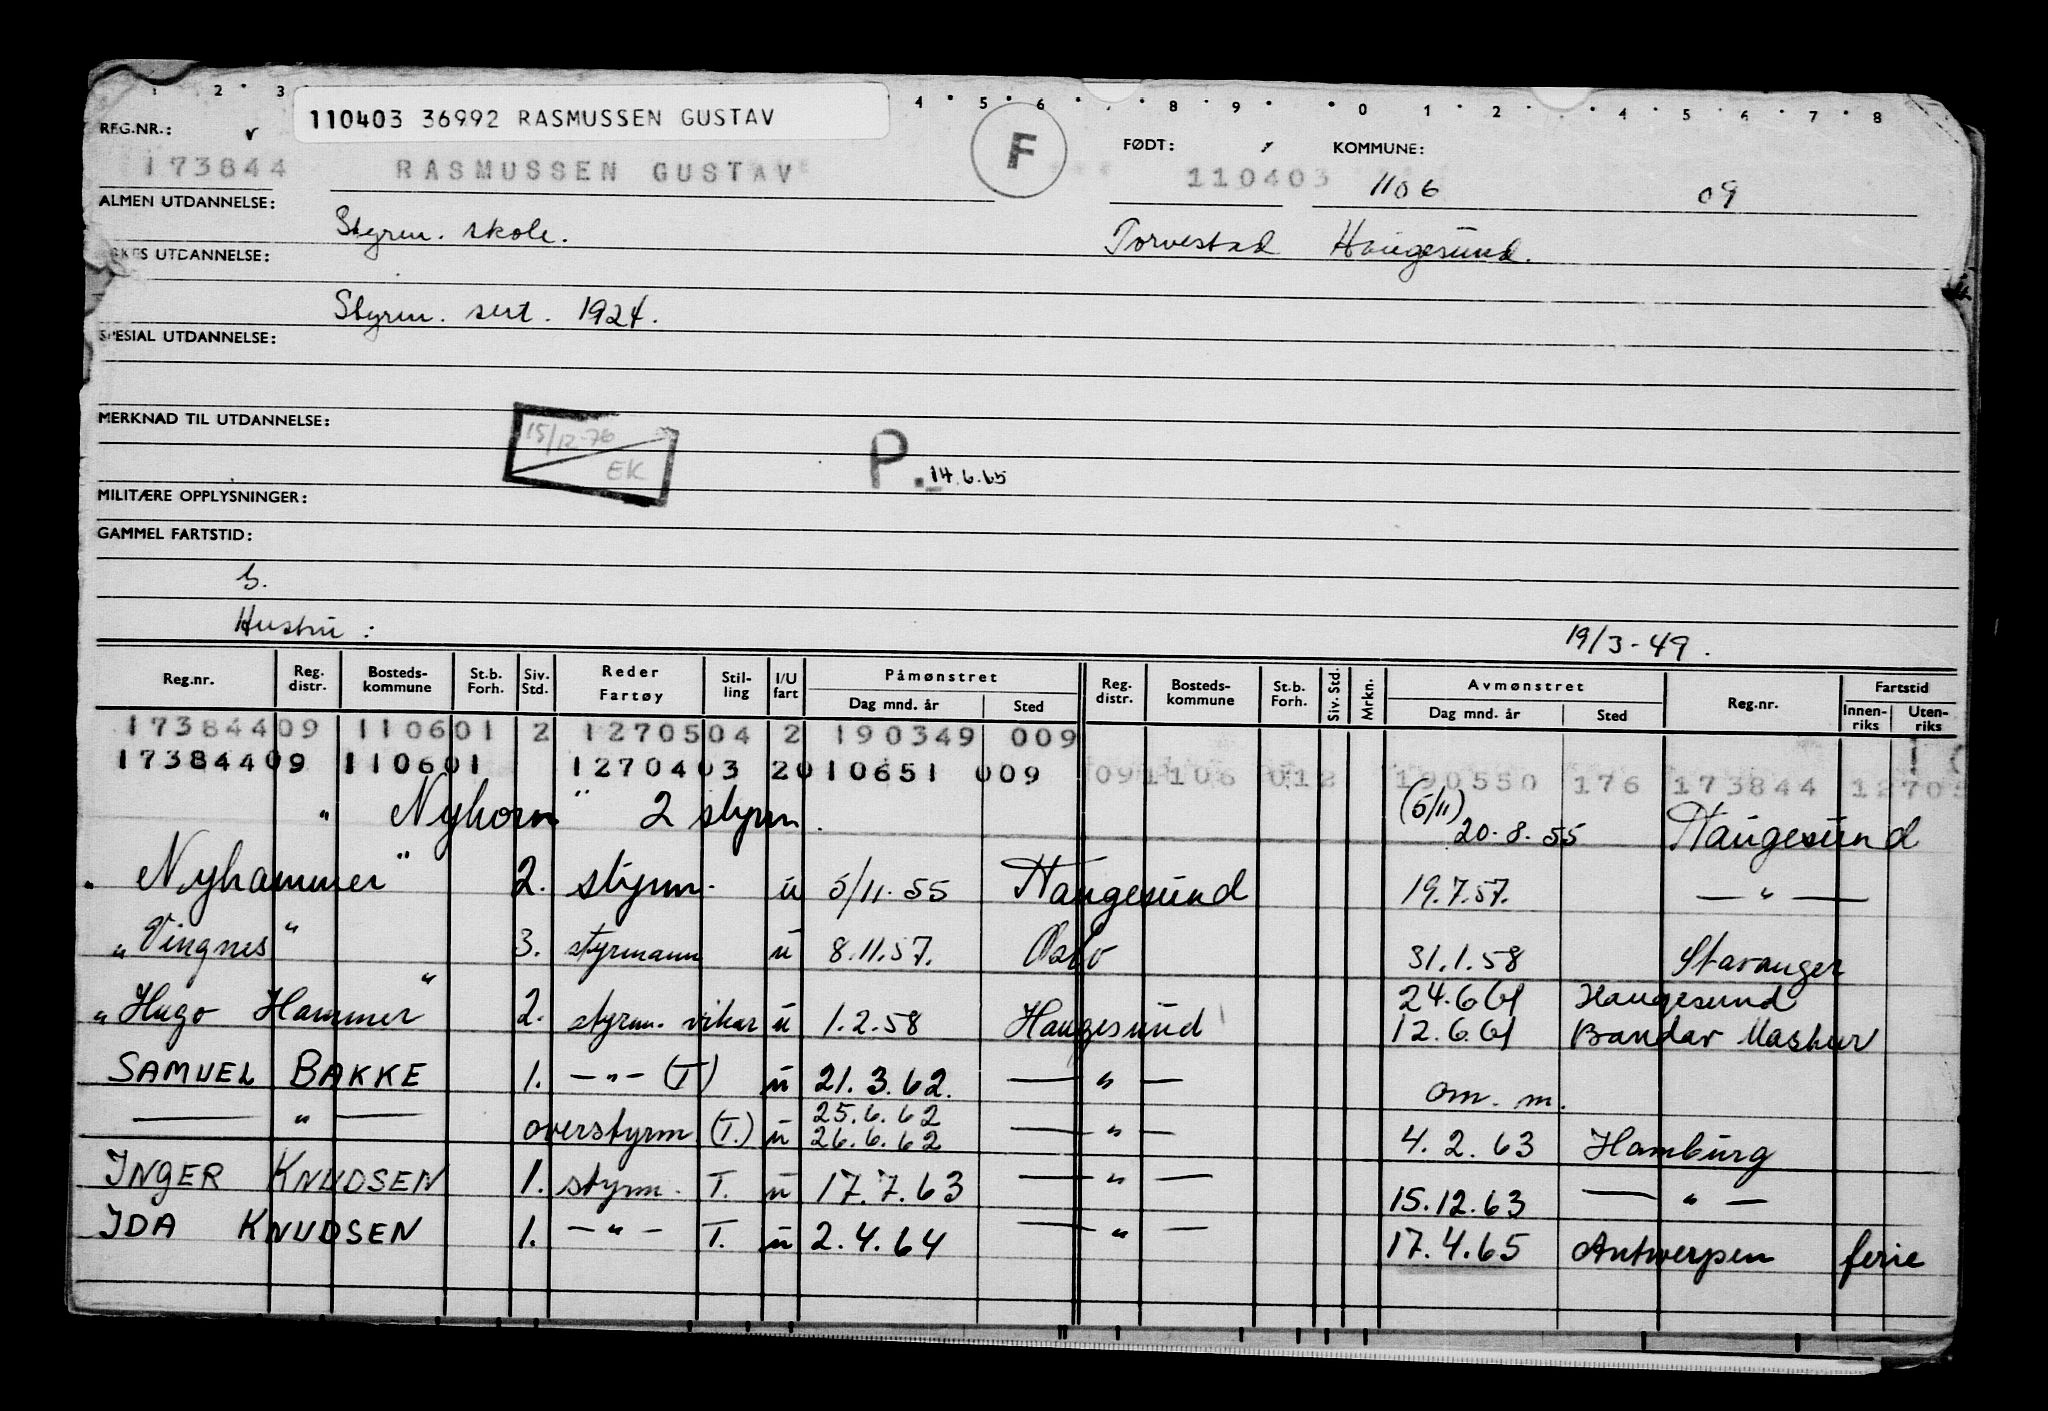 1 2 3 4 5 6 8 9 0 1 2 4 5 6 7 8
110403 36992 RASMUSSEN GUSTAV
REG.NR.: FØDT: KOMMUNE:
F
173844 RASMUSSEN GUSTAV 110403 1106 09
ALMEN UTDANNELSE:
Styrm. skole. Torvestad Haugesund.
UTDANNELSE:
Styrm. sert. 1924.
SPESIAL UTDANNELSE:
MERKNAD TIL UTDANNELSE:
15/12-76
EK
P. 14.6.65
MILITÆRE OPPLYSNINGER:
GAMMEL FARTSTID:
Hustru: 19/3-49.
Reg.nr. Reg. distr. Bosteds-kommune St.b. Forh. Siv. Std. Reder Fartøy Stil-ling I/U fart Påmønstret Dag mnd. år Sted Reg. distr. Bosteds-kommune St.b. Forh. Siv. Std. Mrkn. Avmønstret Dag mnd. år Sted Reg.nr. Fartstid Innen-riks Uten-riks
17384409 110601 2 1270504 2 190349 009
17384409 110601 1270403 20 10651 009 091106 012 190550 176 173844 12705
" Nyhorn " 2 styrm. (5/11) 20-8-55 Haugesund
" Nyhammer " 2. styrm. u 5/11-55 Haugesund 19.7.57. — " —
" Vingnes " 3. styrmann u 8.11.57. Oslo 31.1.58 Stavanger
" Hugo Hammer " 2. styrm. vikar u 1.2.58 Haugesund 24.6.61 Haugesund
12.6.61 Bandar Mashur
SAMUEL BAKKE 1. — " — (T) u 21.3.62. — " — om. m.
— " — overstyrm. (T.) u 25.6.62
26.6.62 — " — 4.2.63 Hamburg
INGER KNUDSEN 1. styrm. T. u 17.7.63 — " — 15.12.63 — " —
IDA KNUDSEN 1. — " — T. u 2.4.64 — " — 17.4.65 Antwerpen ferie